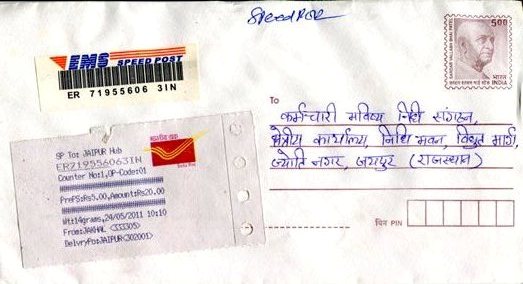 Speed Post
EMS SPEED POST
ER 71955606 3IN
SP To: JAIPUR Hub
ER719556063IN
Counter No:1,OP-Code:01
PrePS:Rs5.00,Amount:Rs20.00
Wt:14grams,24/05/2011 10:10
From:JAKHAL <333305>
DelvryPo:JAIPUR<302001>
भारतीय डाक
India Post
SARDAR VALLABH BHAI PATEL
5.00
भारत
INDIA
To
कर्मचारी भविष्य निधी संगठन,
क्षेत्रीय कार्यालय, निधि भवन, विधुत मार्ग,
ज्योति नगर, जयपुर (राजस्थान)
पिन PIN